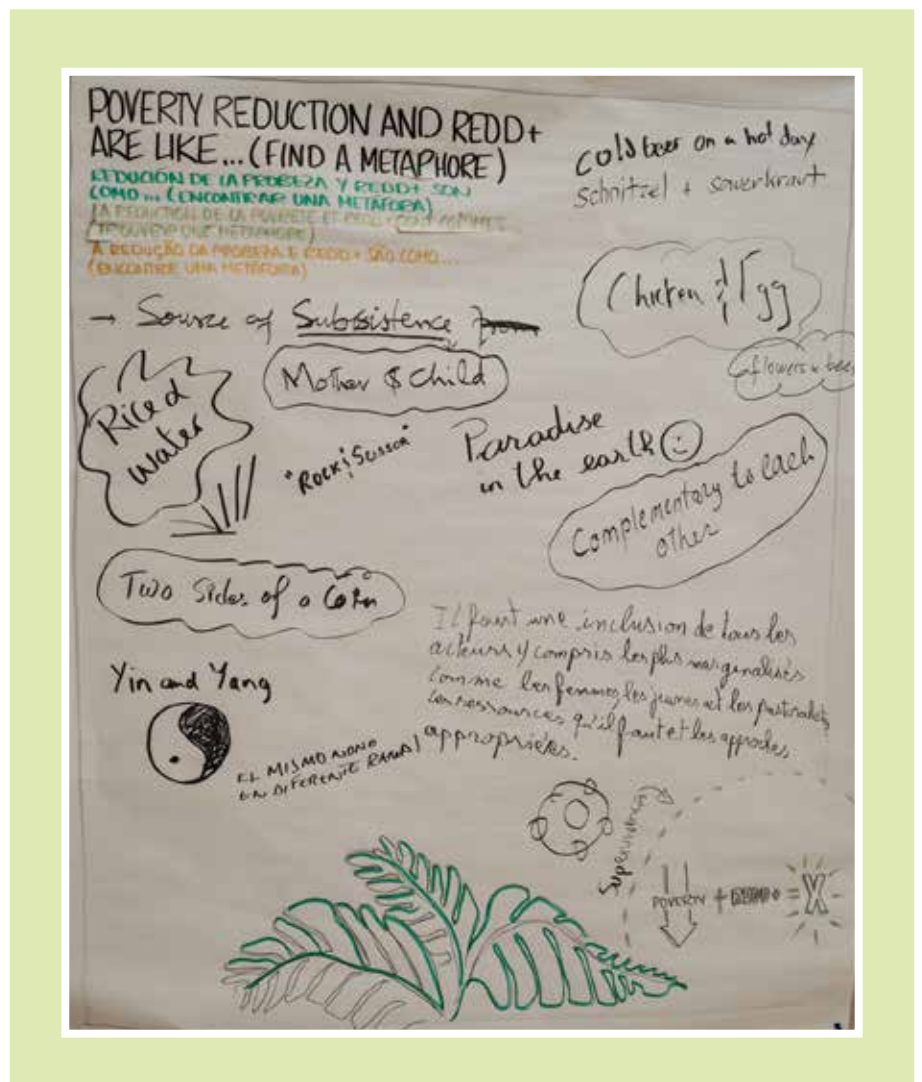 POVERTY REDUCTION AND REDD+
ARE LIKE... (FIND A METAPHORE)
REDUCIÓN DE LA PROBEZA Y REDD+ SON
COMO... (ENCONTRAR UNA METAFORA)
LA REDUCTION DE LA POVRETE ET REDD+ SONT COMMES
(TROUVER UNE METAPHORE)
A REDUÇÃO DA PROBEZA E REDD+ SÃO COMO...
(ENCONTRE UNA METAFORA)
cold beer on a hot day
Schnitzel + sauerkraut
Chicken & Egg
flowers & bees
→ Source of Subsistence
Mother & Child
Rice &
water
"Rock & Scissor"
Paradise
in the earth
Complementary to each
other
Two Sides of a Coin
Il faut une inclusion de tous les
acteurs y compris les plus marginalisés
comme les femmes, les jeunes et les
les ressources qu'il faut et les
appropriées.
Yin and Yang
EL MISMO MONO
EN DIFERENTE RAMA
Supervivencia
POVERTY + REDD+ = X